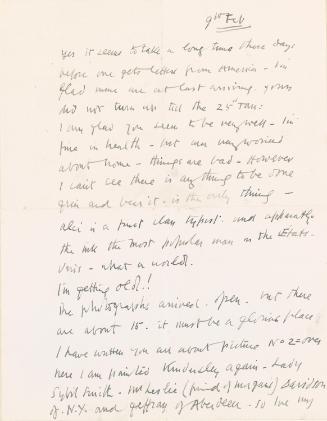 9th Feb
Yes it seems to take a long time these days
before one gets letters from America - I'm
glad mine are at last arriving. yours
did not turn up till the 25th Jan:
I am glad you seem to be very well - I'm
fine in health - but am very worried
about home - things are bad - However
I can't see there is anything to be done
grin and bear it - is the only thing -
is a first class typist. and apparently
the most popular man in the Etats-
Unis - what a world.
I'm getting old!!
The photographs arrived. open. but there
are about 15. it must be a glorious place.
I have written you all about picture No 2 = over
here I am painting Kimberley again - Lady
Sybil Smith - Mr Leslie (friend of Morgans) Davidson
of N.Y. and Geffray of Aberdeen - so I've my